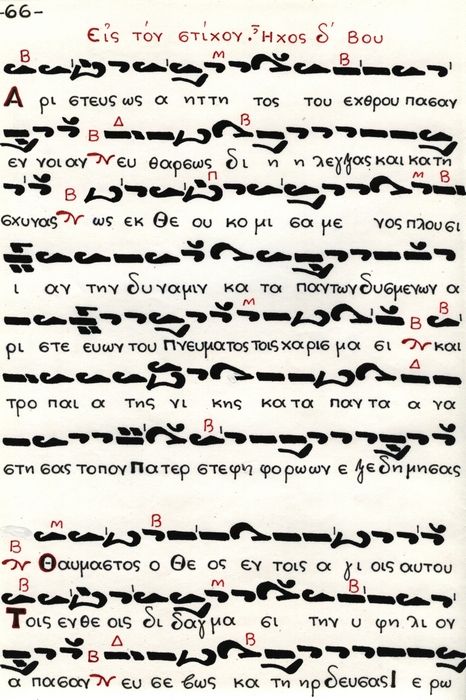 -66-
Εἰς τόν στίχον. Ἦχος δ´ Βου
Β Μ Β
Α ρι στευς ως α ητ τη τος του εχθρου πασαν
Β Δ Β
εν νοι αν ευ θαρσως δι η η λεγξας και κα τη
Β Π Μ Β
σχυνας ως εκ Θε ου κο μι σα με νος πλου σι
ι αν την δυ ναμιν κα τα παντων δυσμενων α
Μ Β Β
ρι στε ευων του Πνευματος τοις χαρισ μα σι και
Δ
τρο παι α της νι κης κα τα παν τα α να
Β
στη σας τοπον Πατερ στεφη φο ρω ων ε ξε δη μησας
Μ Β
Β
Θαυμαστος ο Θε ος εν τοις α γι οις αυτου
Β Μ Β
Τοις ενθε οις δι δαγμα σι την υ φη λι ον
Β Δ Β
α πασαν ευ σε βως κα τη ηρ δευσας Ι ε ρω